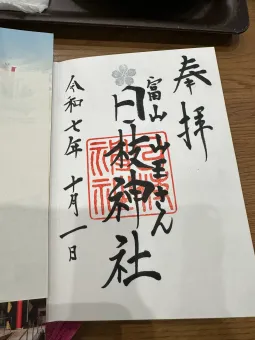 奉拝
富山 山王さん
日枝神社
令和七年 十月一日